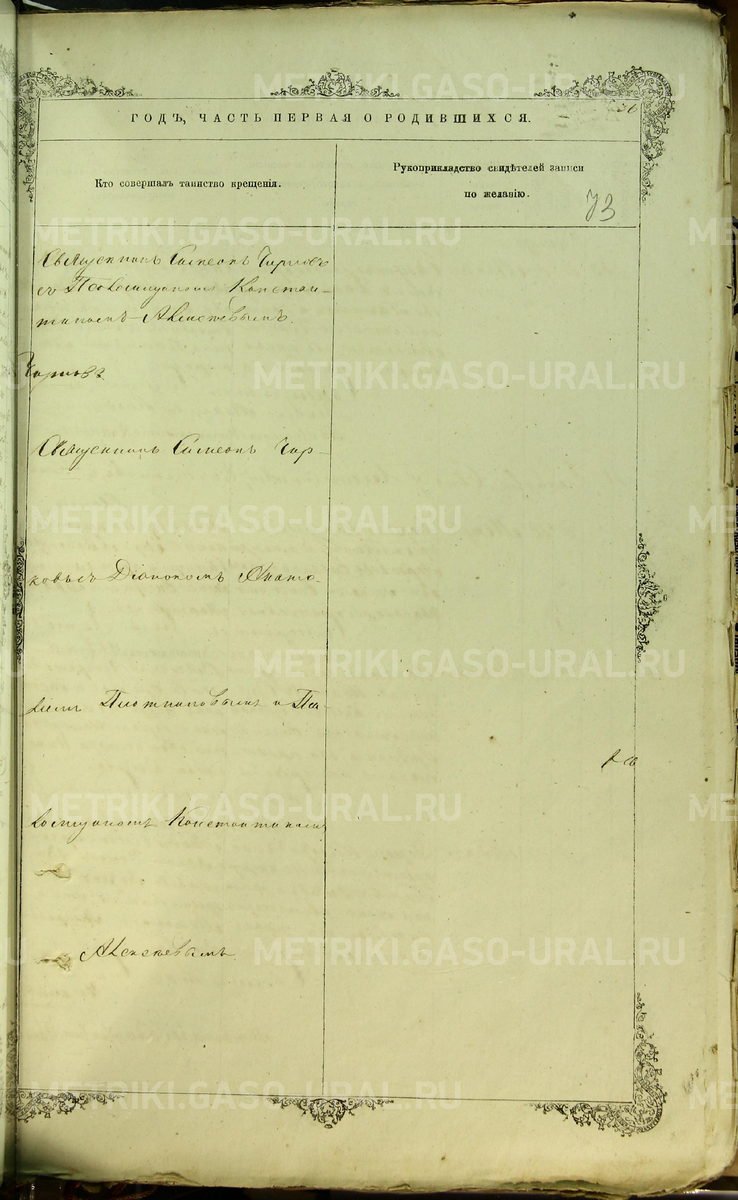 METRIKI.GASO-URAL.RU
ГОДЪ, ЧАСТЬ ПЕРВАЯ О РОДИВШИХСЯ.
Кто совершалъ таинство крещенія.
Рукоприкладство свидѣтелей записи
по желанію.
73
Священникъ Симеонъ
съ Псаломщикомъ Констан-
тиномъ Алексѣевымъ.
Священникъ Симеонъ
Діакономъ
Плотниковымъ и Пса-
ломщикомъ Константиномъ
Алексѣевымъ